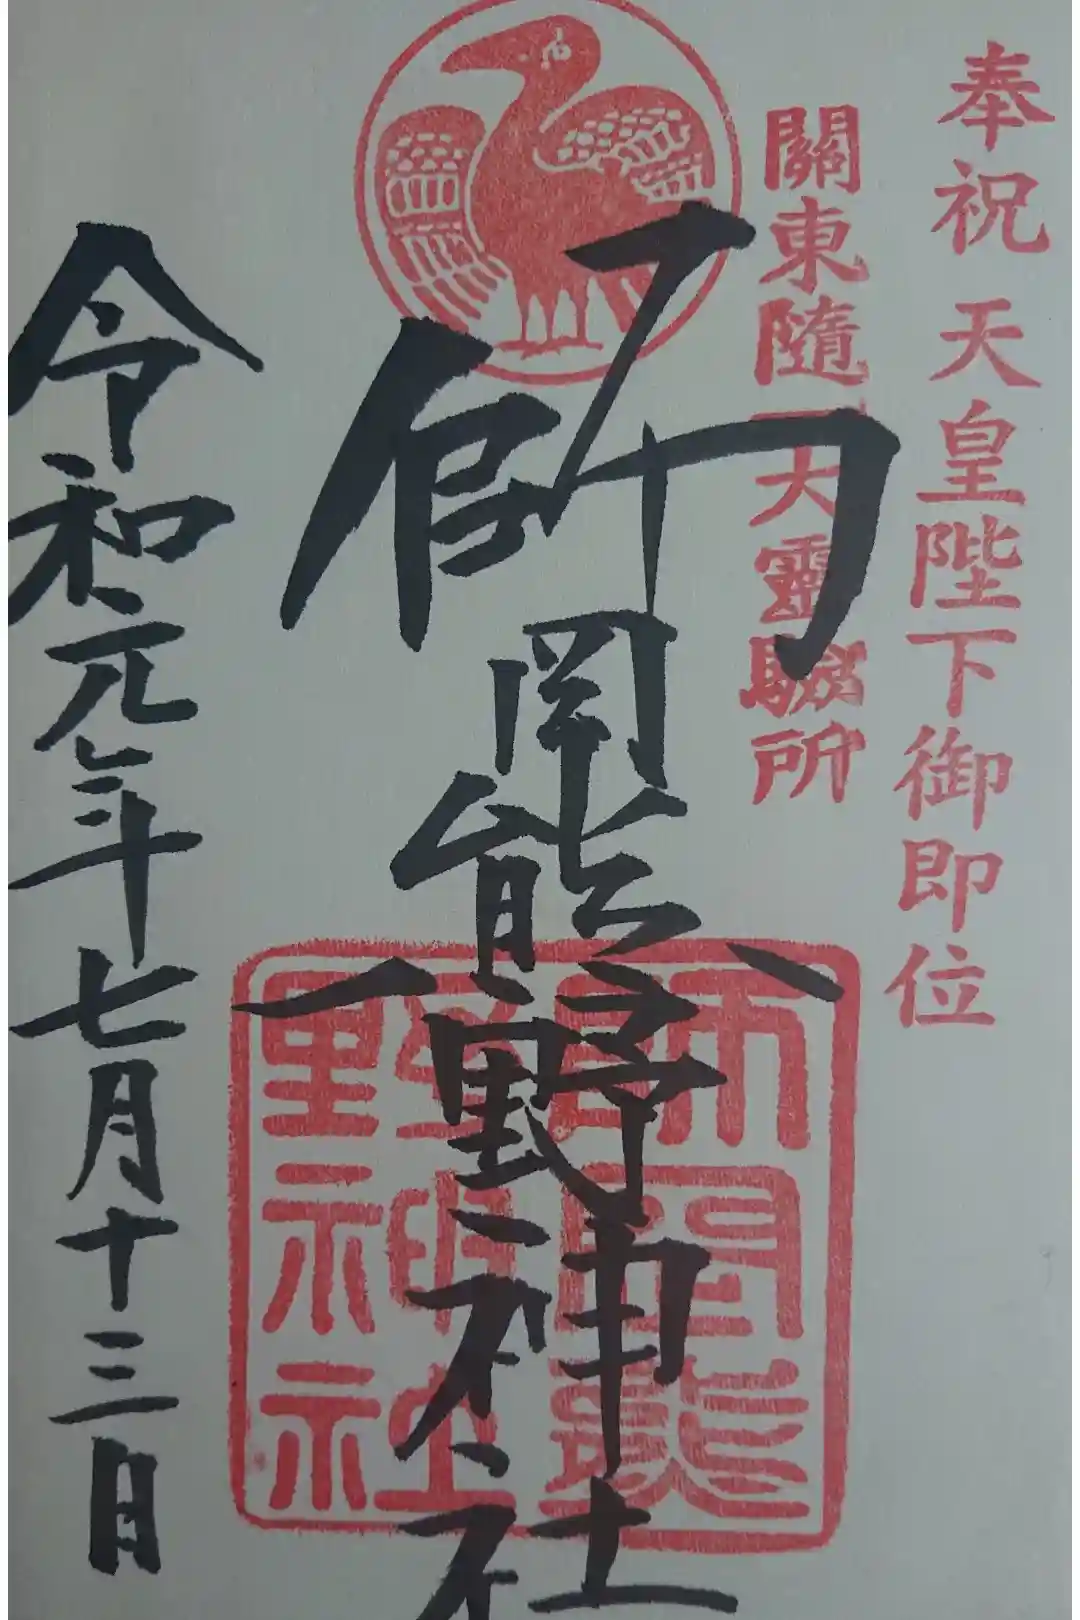 奉祝 天皇陛下御即位
關東隨一大靈驗所
師岡熊野神社
師岡熊野神社
令和元年七月十三日